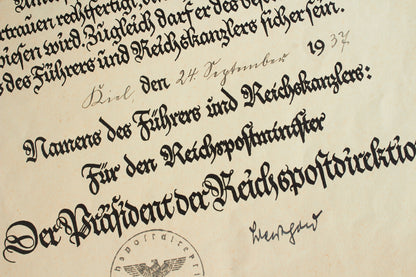 trauen rechtfertigt,
diesen wird. Zugleich darf er des beso
s des Führers und Reichskanzlers sicher sein.
Kiel, den 24. September 1937
Namens des Führers und Reichskanzlers:
Für den Reichspostminister
Der Präsident der Reichspostdirektio